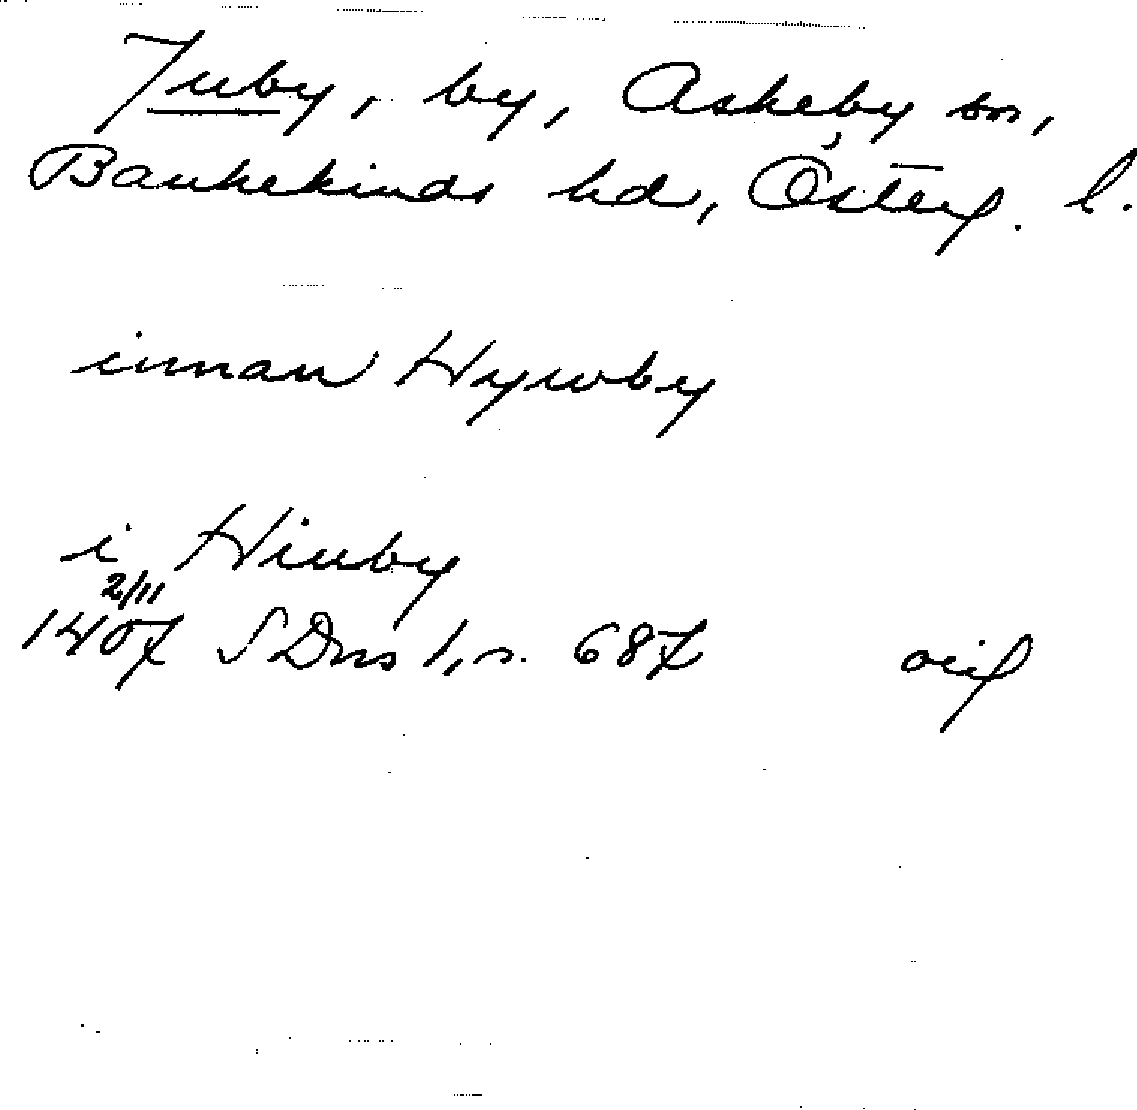 Juby, by, Askeby sn,
Bankekinds hd, Österg. l.
innan Hywby
i Hiuby
2/11
1407 SDns 1, s. 687 orig